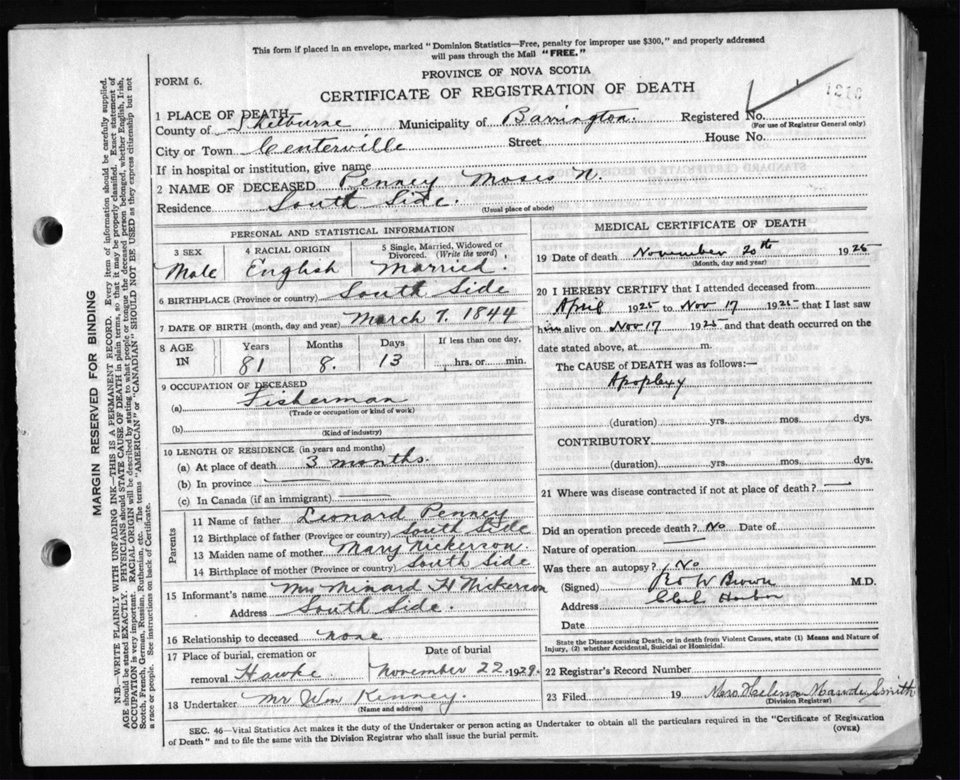 This form if placed in an envelope, marked "Dominion Statistics—Free, penalty for improper use $300," and properly addressed
will pass through the Mail "FREE."
PROVINCE OF NOVA SCOTIA
FORM 6.
CERTIFICATE OF REGISTRATION OF DEATH
1 PLACE OF DEATH
County of Shelburne Municipality of Barrington. Registered No.
(For use of Registrar General only)
City or Town Centerville Street House No.
If in hospital or institution, give name
2 NAME OF DECEASED Penney Moses N.
Residence South Side.
(Usual place of abode)
PERSONAL AND STATISTICAL INFORMATION
3 SEX 4 RACIAL ORIGIN 5 Single, Married, Widowed or Divorced. (Write the word)
Male English Married.
6 BIRTHPLACE (Province or country) South Side
7 DATE OF BIRTH (month, day and year) March 7. 1844
8 AGE IN Years Months Days If less than one day,
81 8. 13 hrs. or min.
9 OCCUPATION OF DECEASED
(a) Fisherman
(Trade or occupation or kind of work)
(b)
(Kind of industry)
10 LENGTH OF RESIDENCE (in years and months)
(a) At place of death 3 months.
(b) In province
(c) In Canada (if an immigrant)
Parents
11 Name of father Leonard Penney
12 Birthplace of father (Province or country) South Side
13 Maiden name of mother Mary Nickerson.
14 Birthplace of mother (Province or country) South Side
15 Informant's name Mrs Minard H Nickerson
Address South Side.
16 Relationship to deceased none
17 Place of burial, cremation or removal Date of burial
Hawke November 22 1929.
18 Undertaker Mr Wm Kenney.
(Name and address)
MEDICAL CERTIFICATE OF DEATH
19 Date of death November 20th 1925
(Month, day and year)
20 I HEREBY CERTIFY that I attended deceased from
April 1925 to Nov 17 1925 that I last saw
him alive on Nov 17 1925 and that death occurred on the
date stated above, at m.
The CAUSE of DEATH was as follows:—
Apoplexy
(duration) yrs. mos. dys.
CONTRIBUTORY
(duration) yrs. mos. dys.
21 Where was disease contracted if not at place of death?
Did an operation precede death? No Date of
Nature of operation
Was there an autopsy? No
(Signed) W Brown M.D.
Address Clark Harbor
Date
State the Disease causing Death, or in death from Violent Causes, state (1) Means and Nature of
Injury, (2) whether Accidental, Suicidal or Homicidal.
22 Registrar's Record Number
23 Filed 19 Mrs. Maude Smith
(Division Registrar)
SEC. 46—Vital Statistics Act makes it the duty of the Undertaker or person acting as Undertaker to obtain all the particulars required in the "Certificate of Registration
of Death" and to file the same with the Division Registrar who shall issue the burial permit.
(OVER)
MARGIN RESERVED FOR BINDING
N.B.—WRITE PLAINLY WITH UNFADING INK—THIS IS A PERMANENT RECORD. Every item of information should be carefully supplied.
AGE should be stated EXACTLY. PHYSICIANS should STATE CAUSE OF DEATH in plain terms, so that it may be properly classified. Exact statement of
OCCUPATION is very important. RACIAL ORIGIN will be described by stating to what people or tongue the deceased person belonged, whether English, Irish,
Scotch, French, German, Russian, Ruthenian, etc. The terms "AMERICAN" or "CANADIAN" SHOULD NOT BE USED as they express citizenship but not
a race or people. See instructions on back of Certificate.